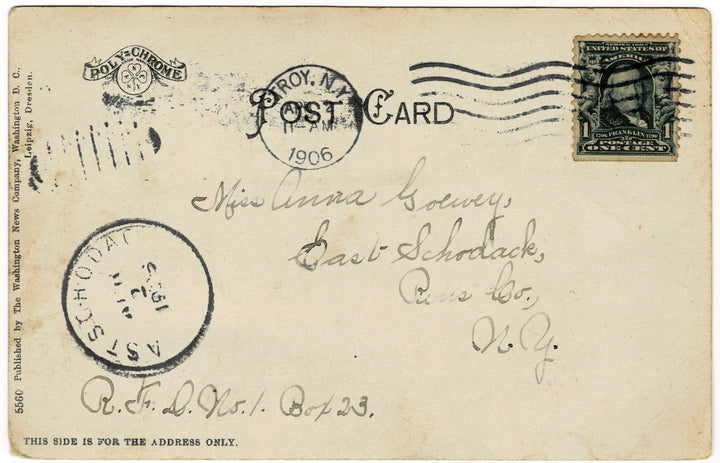 POLY-CHROME
POST CARD
TROY, N.Y.
11-AM
1906
SERIES 1902
UNITED STATES OF
AMERICA
1 1706 FRANKLIN 1790 1
POSTAGE
ONE CENT
Miss Anna Goewey,
East Schodack,
Rens Co.,
N.Y.
R.F.D. No. 1. Box 23.
AST SCHODAC
2
THIS SIDE IS FOR THE ADDRESS ONLY.
5560 Published by The Washington News Company, Washington D. C.,
Leipzig, Dresden.